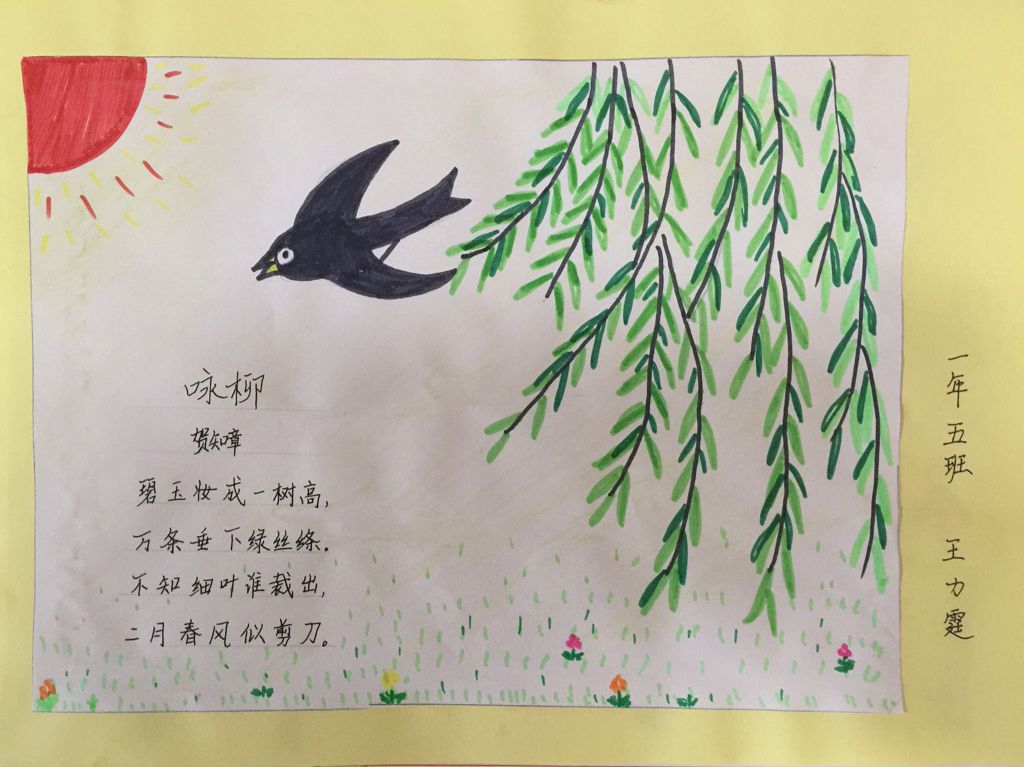 咏柳
贺知章
碧玉妆成一树高，
万条垂下绿丝绦.
不知细叶谁裁出，
二月春风似剪刀。
一年五班 王力霆